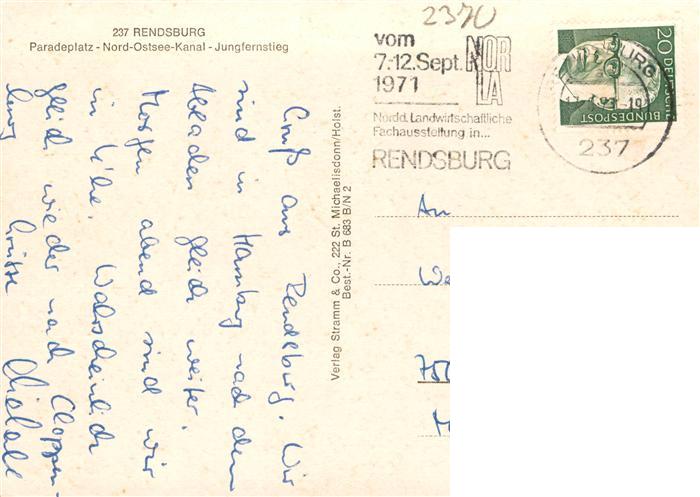 237 RENDSBURG
Paradeplatz - Nord-Ostsee-Kanal - Jungfernstieg
2370
vom
7.-12. Sept.
1971
NOR
LA
Nordd. Landwirtschaftliche
Fachausstellung in...
RENDSBURG
20
DEUTSCHE
BUNDESPOST
237
Gruß aus Rendsburg. Wir
sind in Hamburg nach dem
Abladen gleich weiter.
Morgen abend sind wir
in Uhe. Wahrscheinlich
gleich wieder nach Cloppen-
burg Grüße
Verlag Stramm & Co., 222 St. Michaelisdonn/Holst.
Best.-Nr. B 683 B/N 2
An